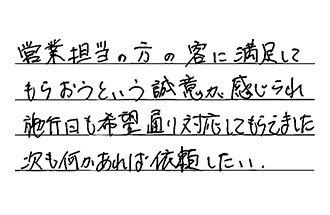 営業担当の方の客に満足して
もらおうという誠意が感じられ
施行日も希望通り対応してもらえました
次も何かあれば依頼したい.